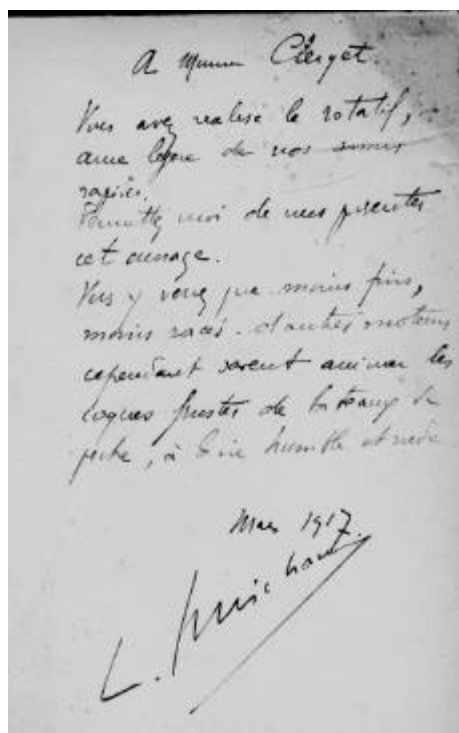 A Monsieur Clerget.
Vous avez realisé le rotatif,
ame légère de nos
rapides.
Permettez moi de vous présenter
cet ouvrage.
Vous y verrez que moins fins,
moins racés. d'autres moteurs
cependant savent animer les
coques frustes de bateaux de
peche, à la vie humble et rude
Mars 1917.
L.